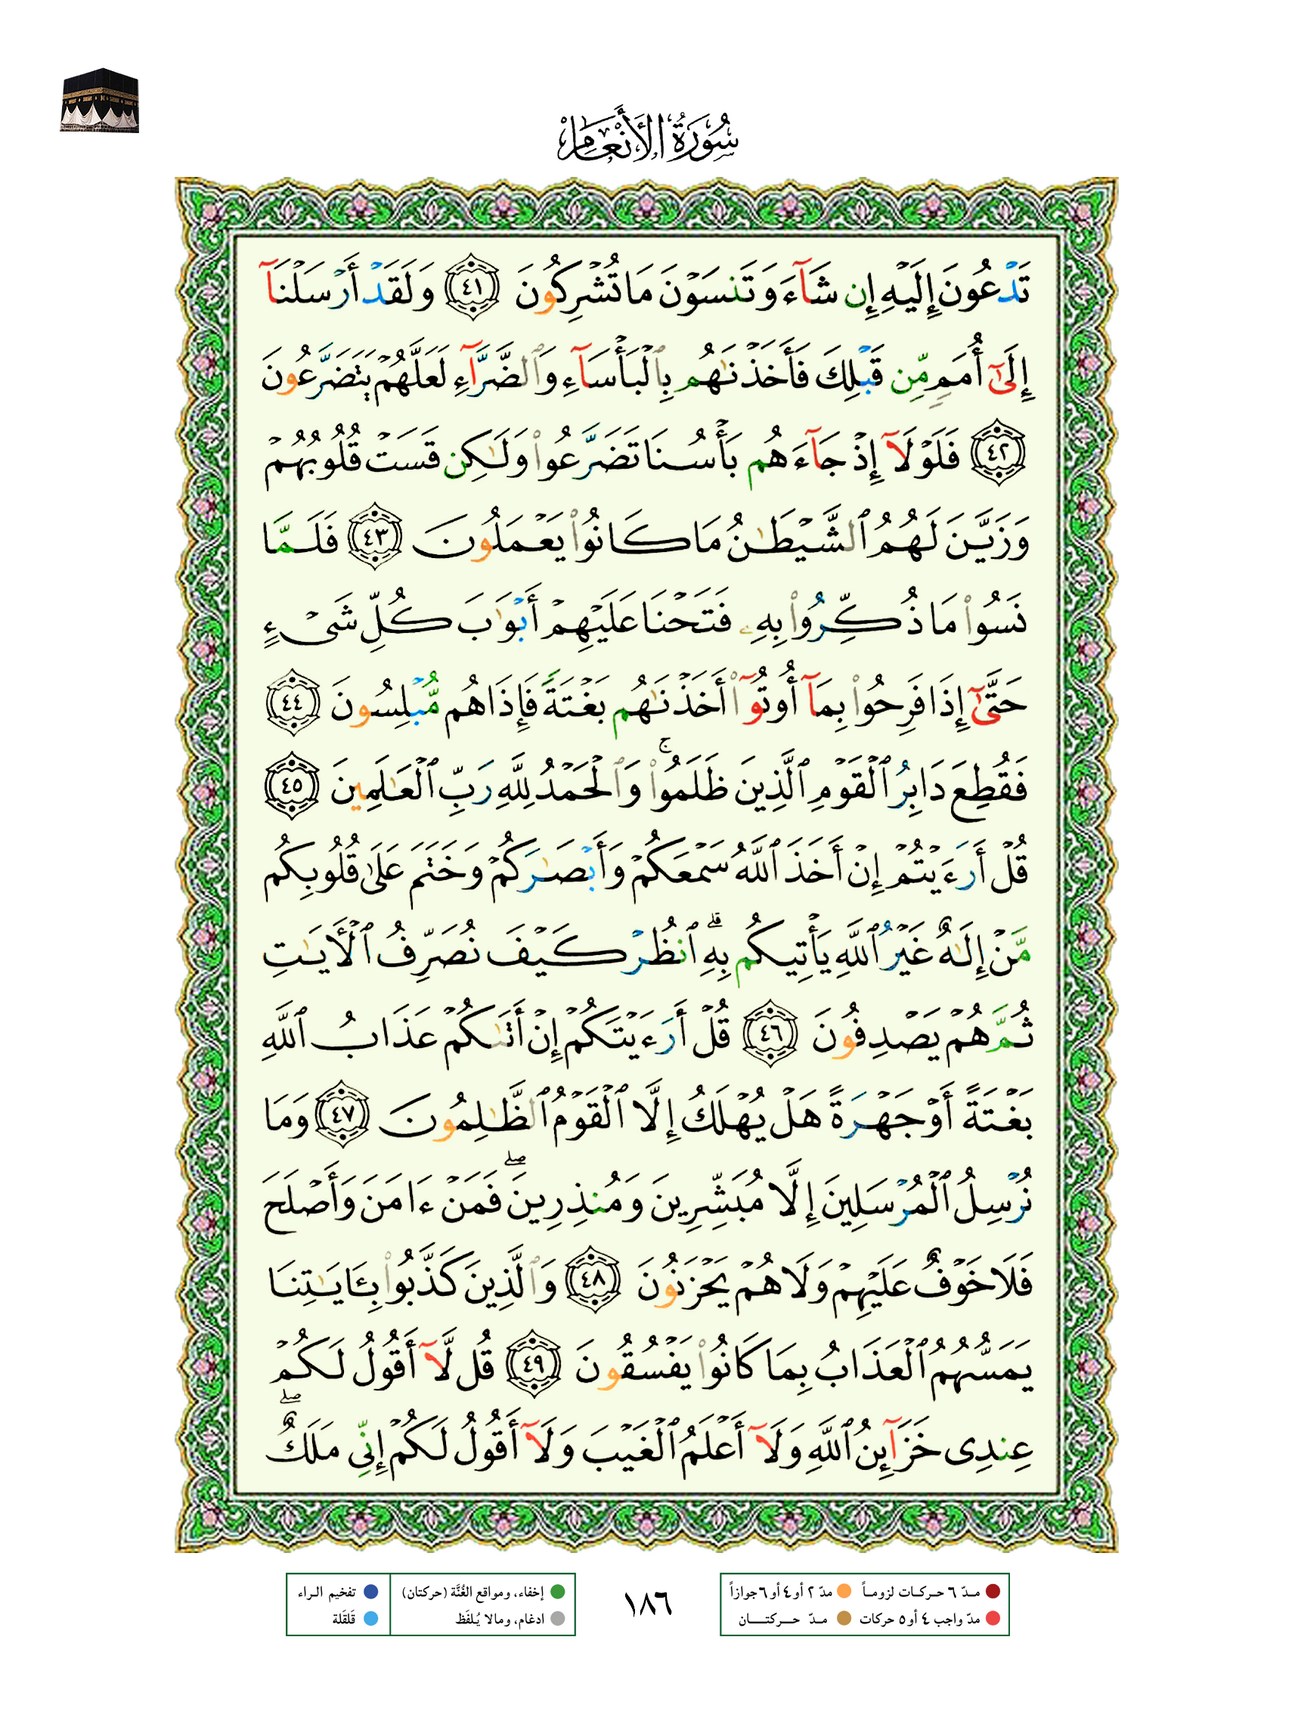 سُورَةُ الْأَنْعَامِ
تَدْعُونَ إِلَيْهِ إِن شَآءَ وَتَنسَوْنَ مَا تُشْرِكُونَ ٤١ وَلَقَدْ أَرْسَلْنَآ
إِلَىٰٓ أُمَمٍ مِّن قَبْلِكَ فَأَخَذْنَٰهُم بِٱلْبَأْسَآءِ وَٱلضَّرَّآءِ لَعَلَّهُمْ يَتَضَرَّعُونَ
٤٢ فَلَوْلَآ إِذْ جَآءَهُم بَأْسُنَا تَضَرَّعُوا۟ وَلَٰكِن قَسَتْ قُلُوبُهُمْ
وَزَيَّنَ لَهُمُ ٱلشَّيْطَٰنُ مَا كَانُوا۟ يَعْمَلُونَ ٤٣ فَلَمَّا
نَسُوا۟ مَا ذُكِّرُوا۟ بِهِۦ فَتَحْنَا عَلَيْهِمْ أَبْوَٰبَ كُلِّ شَىْءٍ
حَتَّىٰٓ إِذَا فَرِحُوا۟ بِمَآ أُوتُوٓا۟ أَخَذْنَٰهُم بَغْتَةً فَإِذَا هُم مُّبْلِسُونَ ٤٤
فَقُطِعَ دَابِرُ ٱلْقَوْمِ ٱلَّذِينَ ظَلَمُوا۟ ۚ وَٱلْحَمْدُ لِلَّهِ رَبِّ ٱلْعَٰلَمِينَ ٤٥
قُلْ أَرَءَيْتُمْ إِنْ أَخَذَ ٱللَّهُ سَمْعَكُمْ وَأَبْصَٰرَكُمْ وَخَتَمَ عَلَىٰ قُلُوبِكُم
مَّنْ إِلَٰهٌ غَيْرُ ٱللَّهِ يَأْتِيكُم بِهِ ۗ ٱنظُرْ كَيْفَ نُصَرِّفُ ٱلْءَايَٰتِ
ثُمَّ هُمْ يَصْدِفُونَ ٤٦ قُلْ أَرَءَيْتَكُمْ إِنْ أَتَىٰكُمْ عَذَابُ ٱللَّهِ
بَغْتَةً أَوْ جَهْرَةً هَلْ يُهْلَكُ إِلَّا ٱلْقَوْمُ ٱلظَّٰلِمُونَ ٤٧ وَمَا
نُرْسِلُ ٱلْمُرْسَلِينَ إِلَّا مُبَشِّرِينَ وَمُنذِرِينَ ۖ فَمَنْ ءَامَنَ وَأَصْلَحَ
فَلَا خَوْفٌ عَلَيْهِمْ وَلَا هُمْ يَحْزَنُونَ ٤٨ وَٱلَّذِينَ كَذَّبُوا۟ بِـَٔايَٰتِنَا
يَمَسُّهُمُ ٱلْعَذَابُ بِمَا كَانُوا۟ يَفْسُقُونَ ٤٩ قُل لَّآ أَقُولُ لَكُمْ
عِندِى خَزَآئِنُ ٱللَّهِ وَلَآ أَعْلَمُ ٱلْغَيْبَ وَلَآ أَقُولُ لَكُمْ إِنِّى مَلَكٌ ۖ
مدّ ٦ حركات لزوماً مدّ ٢ أو ٤ أو ٦ جوازاً
مدّ واجب ٤ أو ٥ حركات مدّ حركتان
١٨٦
إخفاء، ومواقع الغُنَّة (حركتان) تفخيم الراء
ادغام، ومالا يُلفَظ قلقلة